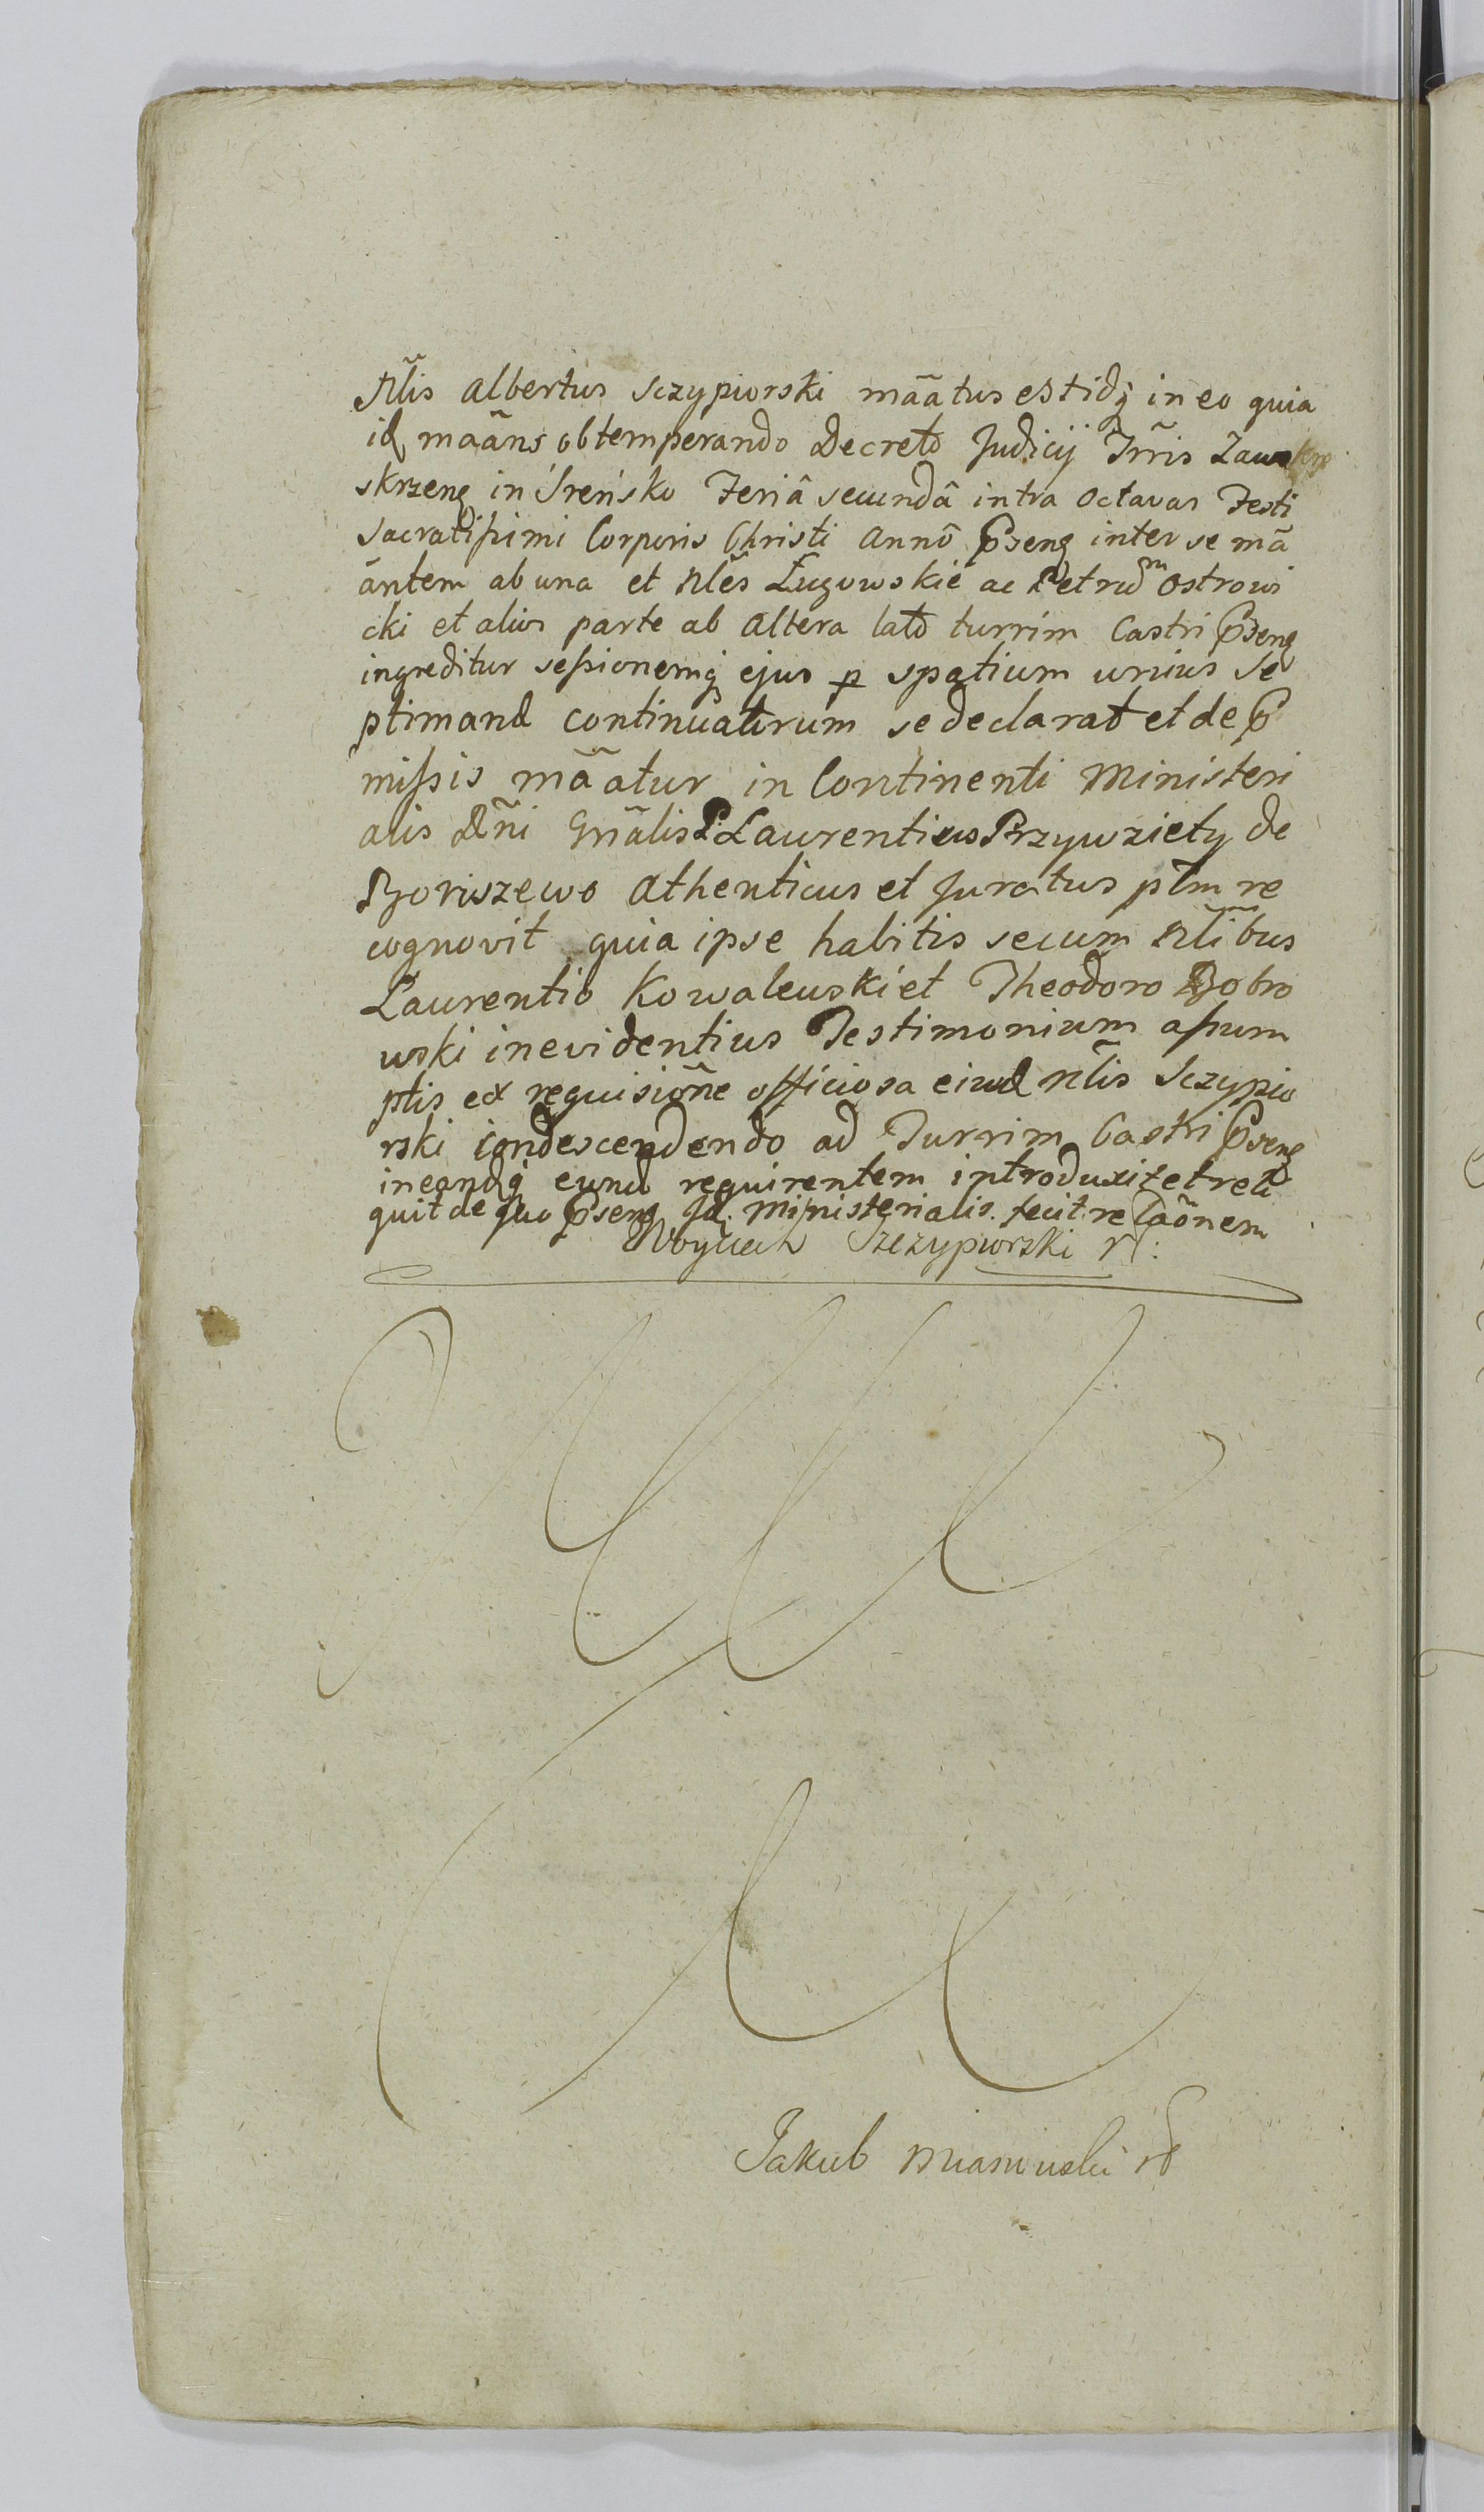 Nl̃is Albertus Sczypiorski mãatus est idq̃ in eo quia
id maãns obtemperando Decreto Judicij Trr̃is Zaw
skrzeng in Śreńsko Feriâ secundâ intra Octavas Festi
Sacratissimi Corporis Christi Annô Pseng inter se mã
ãntem ab una et Nl̃es Ługowskie ac Petrum Ostrowi
cki et alios parte ab Altera lato turrim Castri Pseng
ingreditur sessionemq̃ ejus p spatium unius Se
ptimanæ continuaturum se declarat et de p
missis mãatur in Continenti Ministeri
alis Rñi Gnãlis P. Laurentius Przywziety de
Boriszewo Athenticus et Juratus ptm re
cognovit quia ipse habitis secum Nl̃ibus
Laurentio Kowalewski et Theodoro Bobro
wski in evidentius Testimonium assum
ptis ex requisiõne officiosa eiusd Nl̃is Sczypio
rski condescendendo ad Turrim Castri Pseng
in eandq̃ eund requirentem introduxit et reli
quit de quo Pseng Id. Ministerialis fecit relaõnem
Woyciech Szczypiorski
Jakub